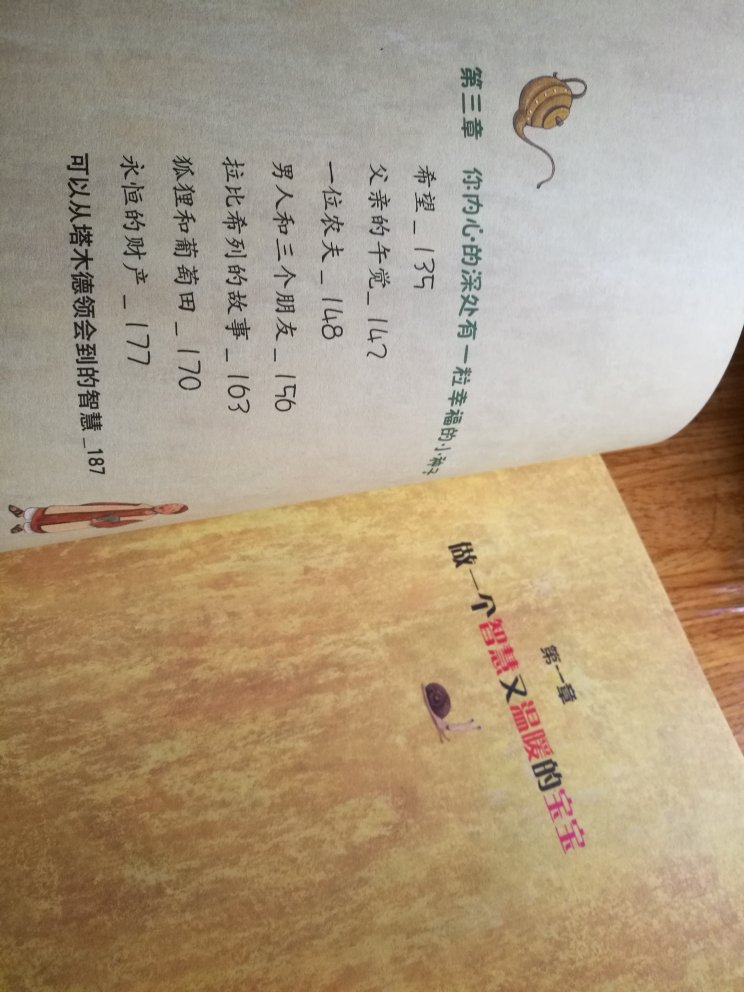 第三章 你内心的深处有一粒幸福的小种子
希望_135
父亲的午觉_142
一位农夫_148
男人和三个朋友_156
拉比希列的故事_163
狐狸和葡萄田_170
永恒的财产_177
可以从塔木德领会到的智慧_187
第一章
做一个智慧又温暖的宝宝